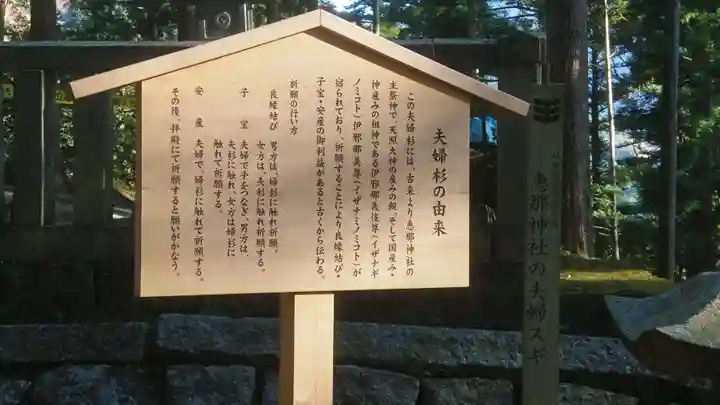 夫婦杉の由来
この夫婦杉には、古来より恵那神社の
主祭神で、天照大神の産みの親、そして国産み・
神産みの祖神である伊邪那義命尊(イザナギ
ノミコト)伊邪那美尊(イザナミノミコト)が
宿られており、祈願することにより良縁結び・
子宝・安産の御利益があると古くから伝わる。
祈願の行い方
良縁結び 男方は、婦杉に触れ祈願。
女方は、夫杉に触れ祈願する。
子宝 夫婦で手をつなぎ、男方は、
夫杉に触れ、女方は婦杉に
触れて祈願する。
安産 夫婦で、婦杉に触れて祈願する。
その後、拝殿にて祈願すると願いがかなう。
恵那神社の夫婦スギ